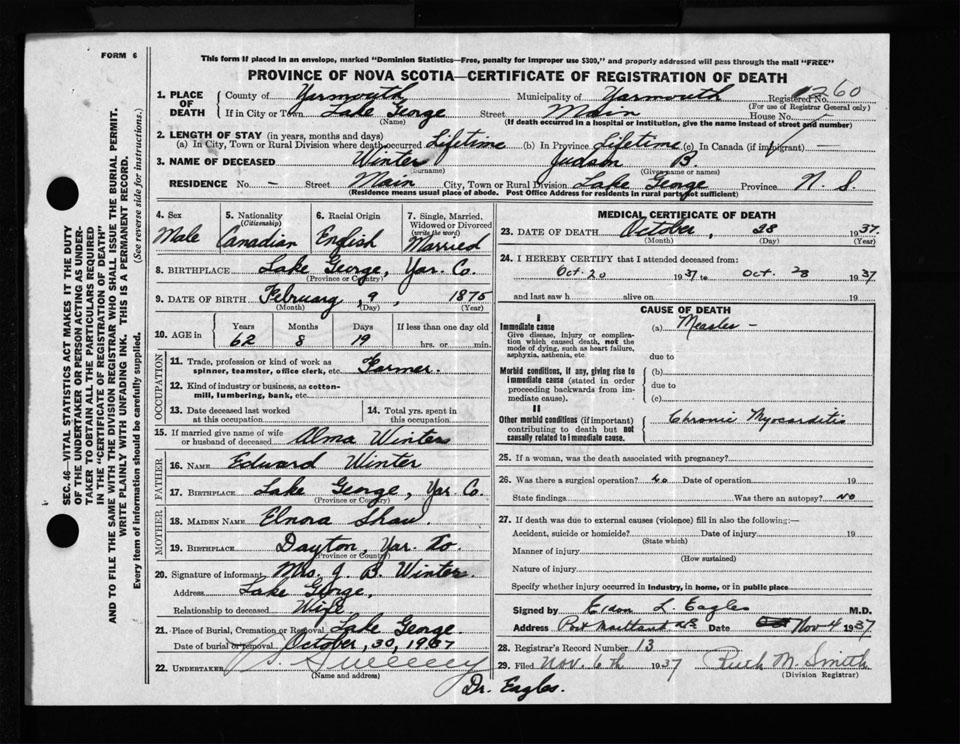 FORM 6
This form if placed in an envelope, marked "Dominion Statistics—Free, penalty for improper use $300," and properly addressed will pass through the mail "FREE"
PROVINCE OF NOVA SCOTIA—CERTIFICATE OF REGISTRATION OF DEATH
1. PLACE OF DEATH County of Yarmouth Municipality of Yarmouth Registered No. 260
(For use of Registrar General only)
If in City or Town Lake George Street Main House No.
(Name) (If death occurred in a hospital or institution, give the name instead of street and number)
2. LENGTH OF STAY (in years, months and days)
(a) In City, Town or Rural Division where death occurred Lifetime (b) In Province Lifetime (c) In Canada (if immigrant) —
3. NAME OF DECEASED Winter Judson B.
(Surname) (Given name or names)
RESIDENCE No. – Street Main City, Town or Rural Division Lake George Province N. S.
(Residence means usual place of abode. Post Office Address for residents in rural parts not sufficient)
4. Sex Male
5. Nationality (Citizenship) Canadian
6. Racial Origin English
7. Single, Married, Widowed or Divorced (write the word) Married
8. BIRTHPLACE Lake George, Yar. Co.
(Province or Country)
9. DATE OF BIRTH February, 9, 1875
(Month) (Day) (Year)
10. AGE in Years 62 Months 8 Days 19 If less than one day old hrs. or min.
OCCUPATION
11. Trade, profession or kind of work as spinner, teamster, office clerk, etc. Farmer.
12. Kind of industry or business, as cotton-mill, lumbering, bank, etc.
13. Date deceased last worked at this occupation
14. Total yrs. spent in this occupation
15. If married give name of wife or husband of deceased Alma Winter
FATHER
16. NAME Edward Winter
17. BIRTHPLACE Lake George, Yar. Co.
(Province or Country)
MOTHER
18. MAIDEN NAME Elnora Shaw.
19. BIRTHPLACE Dayton, Yar. Co.
(Province or Country)
20. Signature of informant Mrs. J. B. Winter.
Address Lake George,
Relationship to deceased Wife
21. Place of Burial, Cremation or Removal Lake George
Date of burial or removal October, 30, 1937
22. UNDERTAKER Sweeney
(Name and address)
Dr. Eagles.
MEDICAL CERTIFICATE OF DEATH
23. DATE OF DEATH October, 28 1937.
(Month) (Day) (Year)
24. I HEREBY CERTIFY that I attended deceased from:
Oct-20 1937 to Oct. 28 1937
and last saw h alive on 19
CAUSE OF DEATH
I
Immediate cause (a) Measles –
Give disease, injury or complication which caused death, not the mode of dying, such as heart failure, asphyxia, asthenia, etc.
due to
Morbid conditions, if any, giving rise to immediate cause (stated in order proceeding backwards from immediate cause).
(b)
due to
(c)
II
Other morbid conditions (if important) contributing to death but not causally related to immediate cause.
Chronic Myocarditis
25. If a woman, was the death associated with pregnancy?
26. Was there a surgical operation? no Date of operation 19
State findings Was there an autopsy? no
27. If death was due to external causes (violence) fill in also the following:—
Accident, suicide or homicide? Date of injury 19
(State which)
Manner of injury
(How sustained)
Nature of injury
Specify whether injury occurred in industry, in home, or in public place
Signed by Eldon L. Eagles M.D.
Address Port Maitland N.S. Date Nov 4 1937
28. Registrar's Record Number 13
29. Filed Nov. 6th 1937 Ruth M. Smith
(Division Registrar)
SEC. 46—VITAL STATISTICS ACT MAKES IT THE DUTY
OF THE UNDERTAKER OR PERSON ACTING AS UNDER-
TAKER TO OBTAIN ALL THE PARTICULARS REQUIRED
IN THE "CERTIFICATE OF REGISTRATION OF DEATH"
AND TO FILE THE SAME WITH THE DIVISION REGISTRAR WHO SHALL ISSUE THE BURIAL PERMIT.
WRITE PLAINLY WITH UNFADING INK. THIS IS A PERMANENT RECORD.
Every item of information should be carefully supplied. (See reverse side for instructions.)